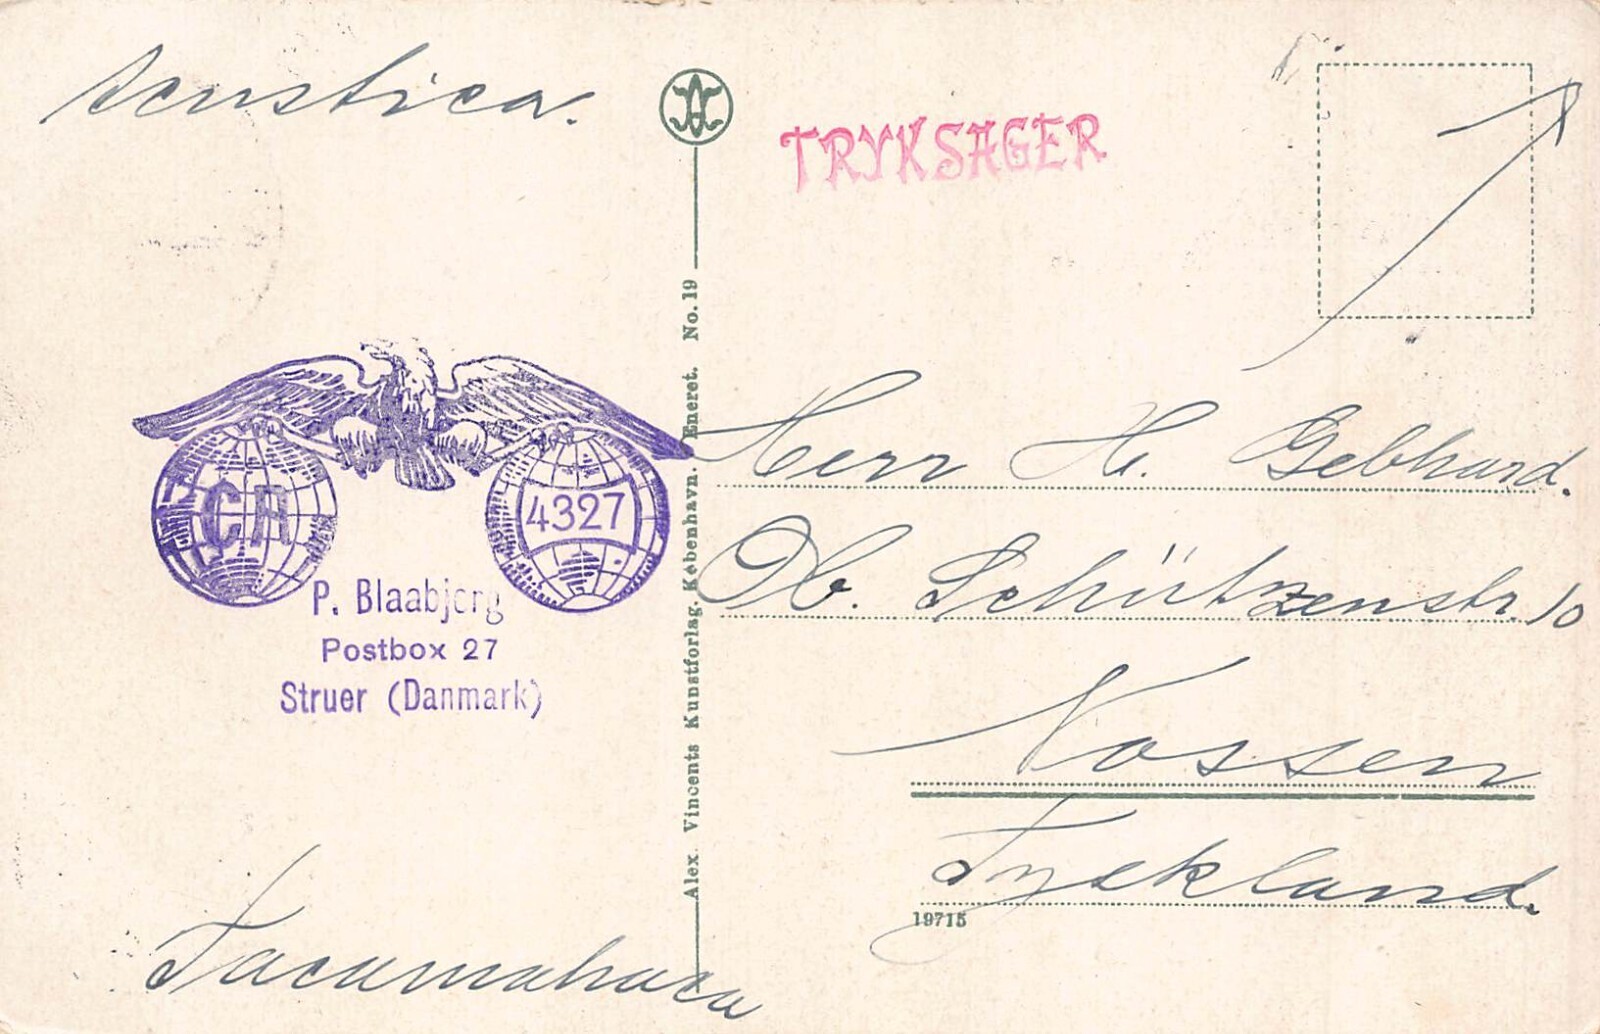 Acustica.
TRYKSAGER
CA
4327
P. Blaabjerg
Postbox 27
Struer (Danmark)
Alex. Vincents Kunstforlag. København. Eneret. No. 19
Herr H. Gebhard.
Ob. Schützenstr. 10
Nossen
Tyskland.
19715
Tacamahaca